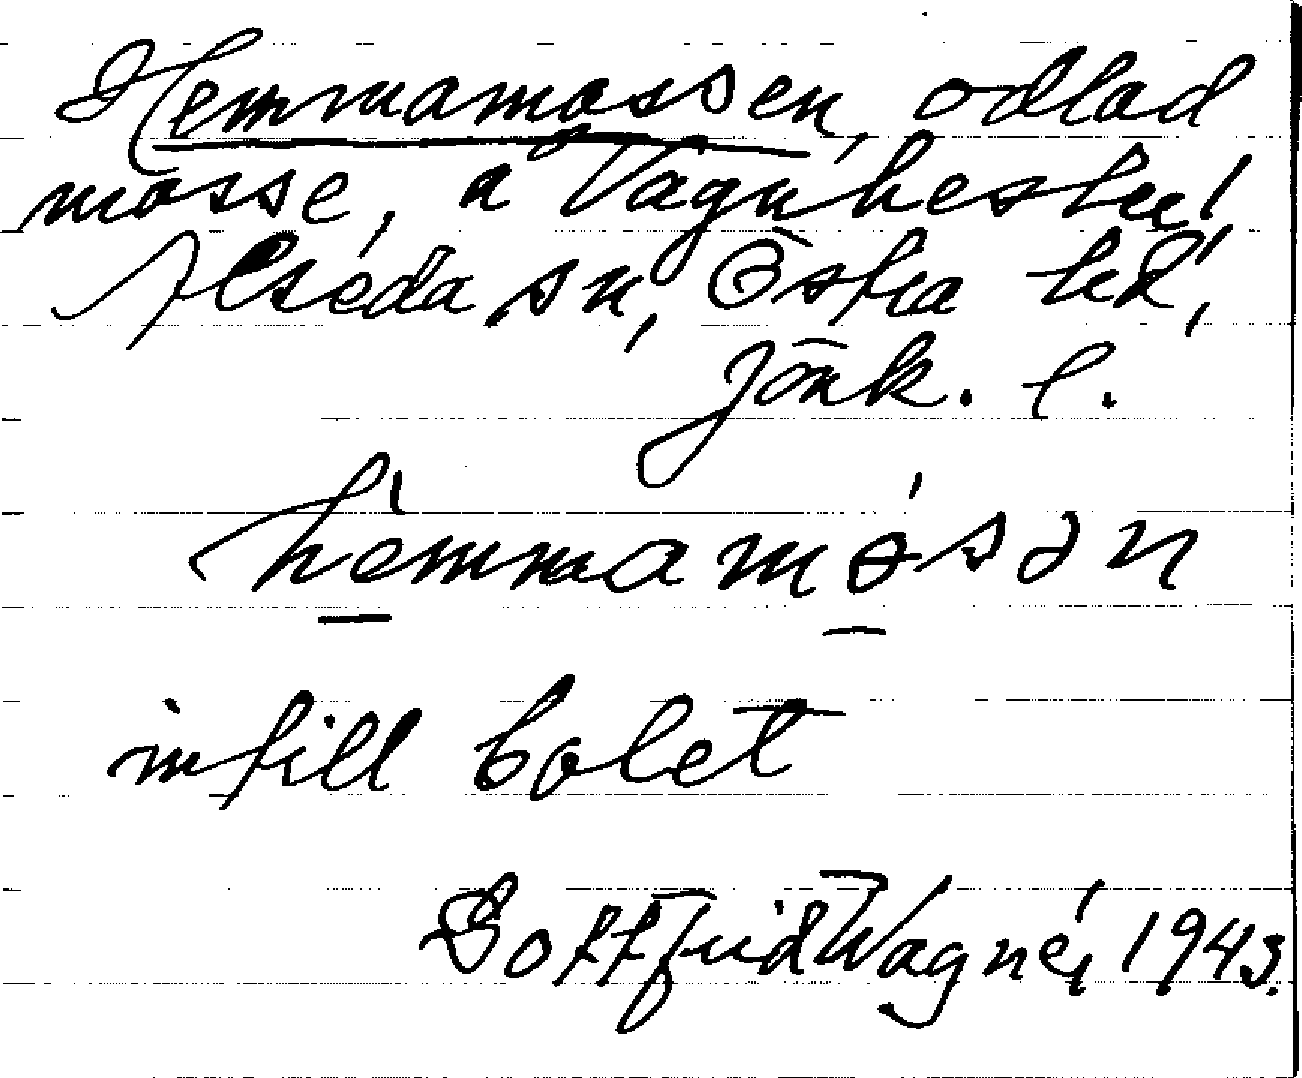 Hemmamossen, odlad
mosse, å Vagnhester,
Alseda sn, Östra hd,
Jönk. l.
hèmmamósan
intill bolet
Gottfrid Wagnér, 1943.